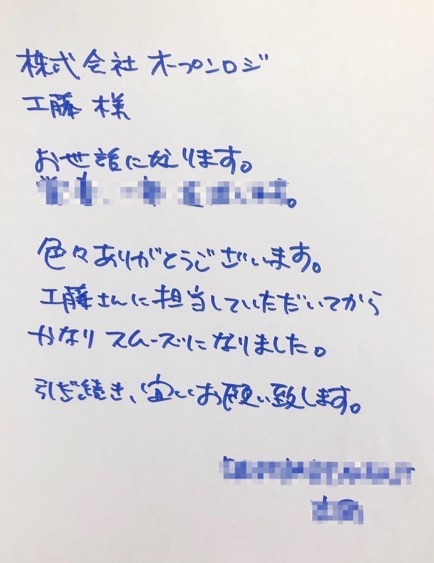 株式会社 オープンロジ
工藤 様
お世話になります。
色々ありがとうございます。
工藤さんに担当していただいてから
かなりスムーズになりました。
引き続き、宜しくお願い致します。